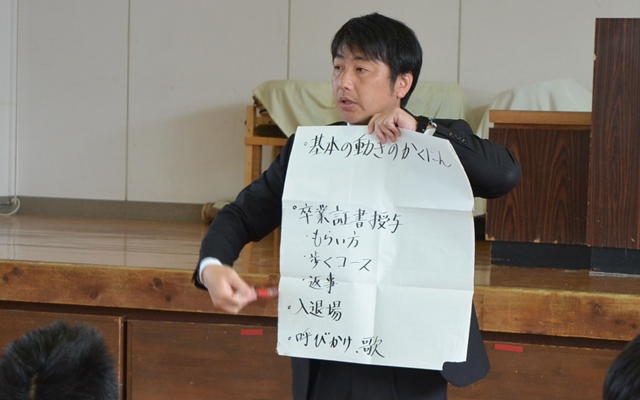 ・基本の動きのかくにん
・卒業証書授与
・もらい方
・歩くコース
・返事
・入退場
・呼びかけ、歌